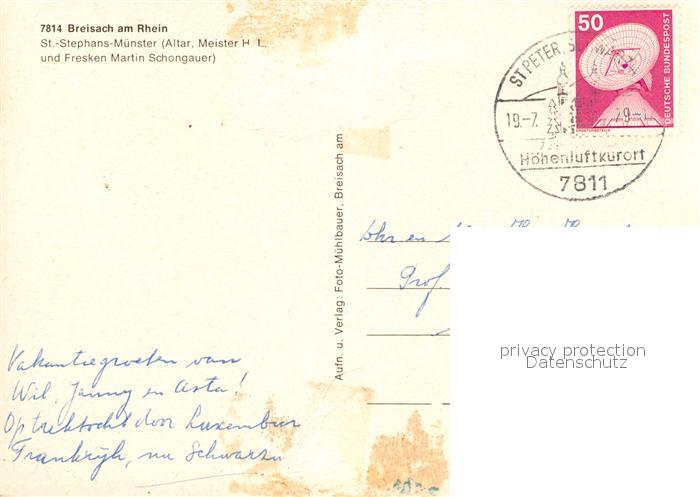 7814 Breisach am Rhein
St.-Stephans-Münster (Altar, Meister H. L.,
und Fresken Martin Schongauer)
50
DEUTSCHE BUNDESPOST
ST PETER,
19.-7.
Höhenluftkurort
7811
Aufn. u. Verlag: Foto-Mühlbauer, Breisach am
Prof.
privacy protection
Datenschutz
Vakantiegroeten van
Wil, Janny en Asta!
Op trektocht door Luxembur
Frankrijk, nu Schwarzw